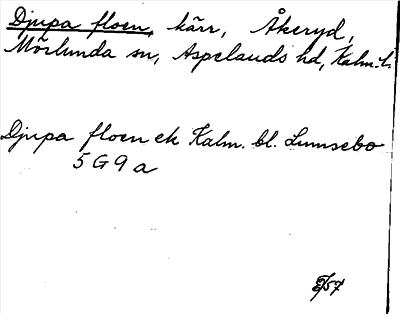 Djupa floen, kärr, Åkeryd,
Mörlunda sn, Aspelands hd, Kalm. l.
Djupa floen ek Kalm. bl. Lunsebo
5 G 9 a